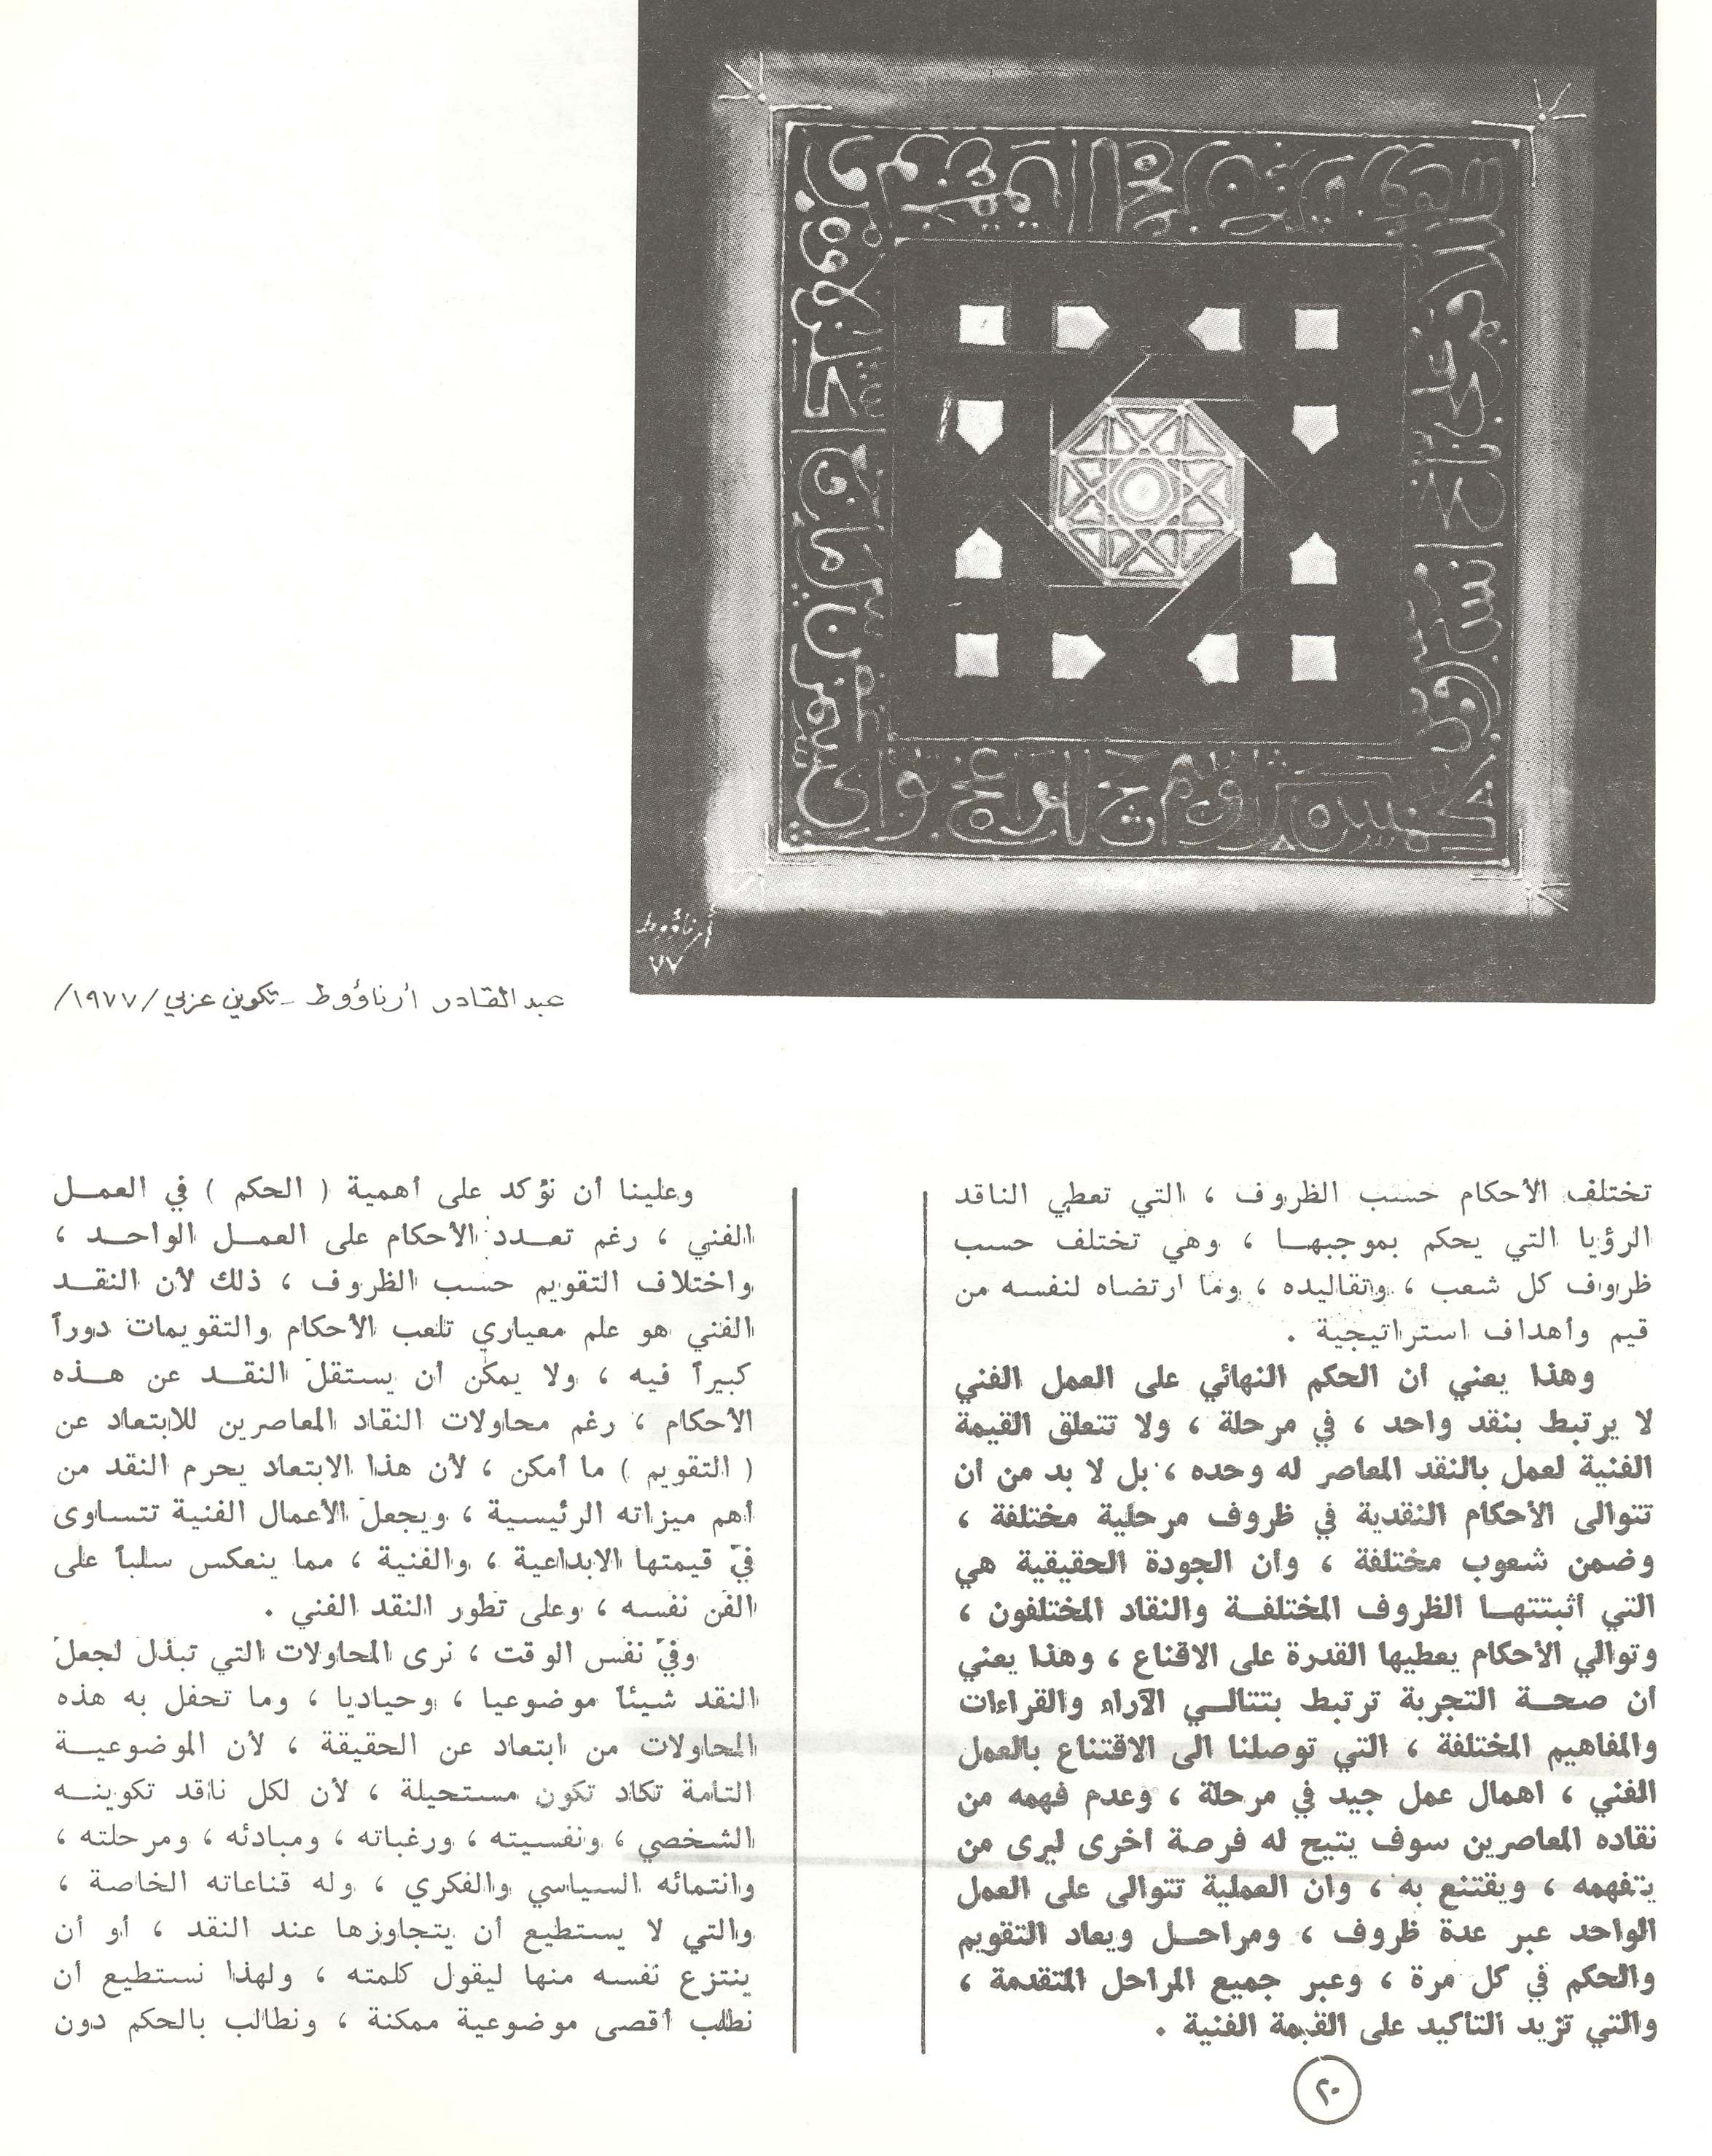 أرناؤوط
٧٧
عبد القادر أرناؤوط - تكوين عربي /١٩٧٧/
تختلف الأحكام حسب الظروف ، التي تعطي الناقد
الرؤيا التي يحكم بموجبهـا ، وهي تختلف حسب
ظروف كل شعب ، وتقاليده ، وما ارتضاه لنفسه من
قيم وأهداف استراتيجية .
وهذا يعني أن الحكم النهائي على العمل الفني
لا يرتبط بنقد واحد ، في مرحلة ، ولا تتعلق القيمة
الفنية لعمل بالنقد المعاصر له وحده ، بل لا بد من أن
تتوالى الأحكام النقدية في ظروف مرحلية مختلفة ،
وضمن شعوب مختلفة ، وأن الجودة الحقيقية هي
التي أثبتتهـا الظروف المختلفـة والنقاد المختلفون ،
وتوالي الأحكام يعطيها القدرة على الاقناع ، وهذا يعني
أن صحـة التجربة ترتبط بتتالـي الآراء والقراءات
والمفاهيم المختلفة ، التي توصلنا الى الاقتناع بالعمل
الفني ، اهمال عمل جيد في مرحلة ، وعدم فهمه من
نقاده المعاصرين سوف يتيح له فرصة أخرى ليرى من
يتفهمه ، ويقتنع به ، وان العملية تتوالى على العمل
الواحد عبر عدة ظروف ، ومراحـل ويعاد التقويم
والحكم في كل مرة ، وعبر جميع المراحل المتقدمة ،
والتي تزيد التأكيد على القيمة الفنية .
وعلينا أن نؤكد على أهمية ( الحكم ) في العمـل
الفني ، رغم تعـدد الأحكام على العمـل الواحـد ،
واختلاف التقويم حسب الظروف ، ذلك لأن النقـد
الفني هو علم معياري تلعب الأحكام والتقويمات دوراً
كبيراً فيه ، ولا يمكن أن يستقل النقـد عن هـذه
الأحكام ، رغم محاولات النقاد المعاصرين للابتعاد عن
( التقويم ) ما أمكن ، لأن هذا الابتعاد يحرم النقد من
أهم ميزاته الرئيسية ، ويجعل الأعمال الفنية تتساوى
في قيمتها الابداعية ، والفنية ، مما ينعكس سلباً على
الفن نفسه ، وعلى تطور النقد الفني .
وفي نفس الوقت ، نرى المحاولات التي تبذل لجعل
النقد شيئاً موضوعيا ، وحياديا ، وما تحفل به هذه
المحاولات من ابتعاد عن الحقيقة ، لأن الموضوعيـة
التامة تكاد تكون مستحيلة ، لأن لكل ناقد تكوينـه
الشخصي ، ونفسيته ، ورغباته ، ومبادئه ، ومرحلته ،
وانتمائه السياسي والفكري ، وله قناعاته الخاصة ،
والتي لا يستطيع أن يتجاوزها عند النقد ، أو أن
ينتزع نفسه منها ليقول كلمته ، ولهذا نستطيع أن
نطلب أقصى موضوعية ممكنة ، ونطالب بالحكم دون
٢٠